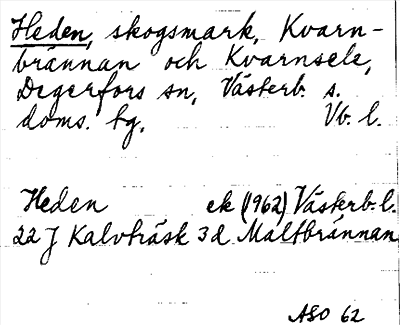 Heden, skogsmark, Kvarn-
brännan och Kvarnsele,
Degerfors sn, Västerb. s.
doms. tg. Vb. l.
Heden ek (1962) Västerb. l.
22 J Kalvträsk 3 d Maltbrännan
ASO 62